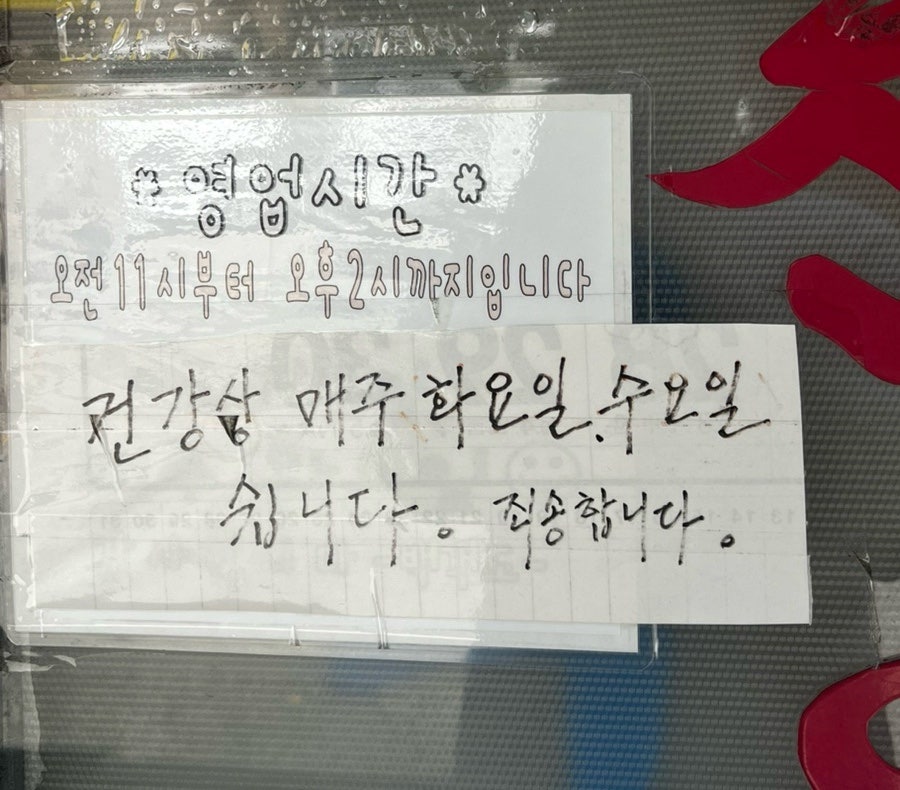 *영업시간*
오전11시부터 오후2시까지입니다
건강상 매주 화요일.수요일
쉽니다. 죄송합니다.